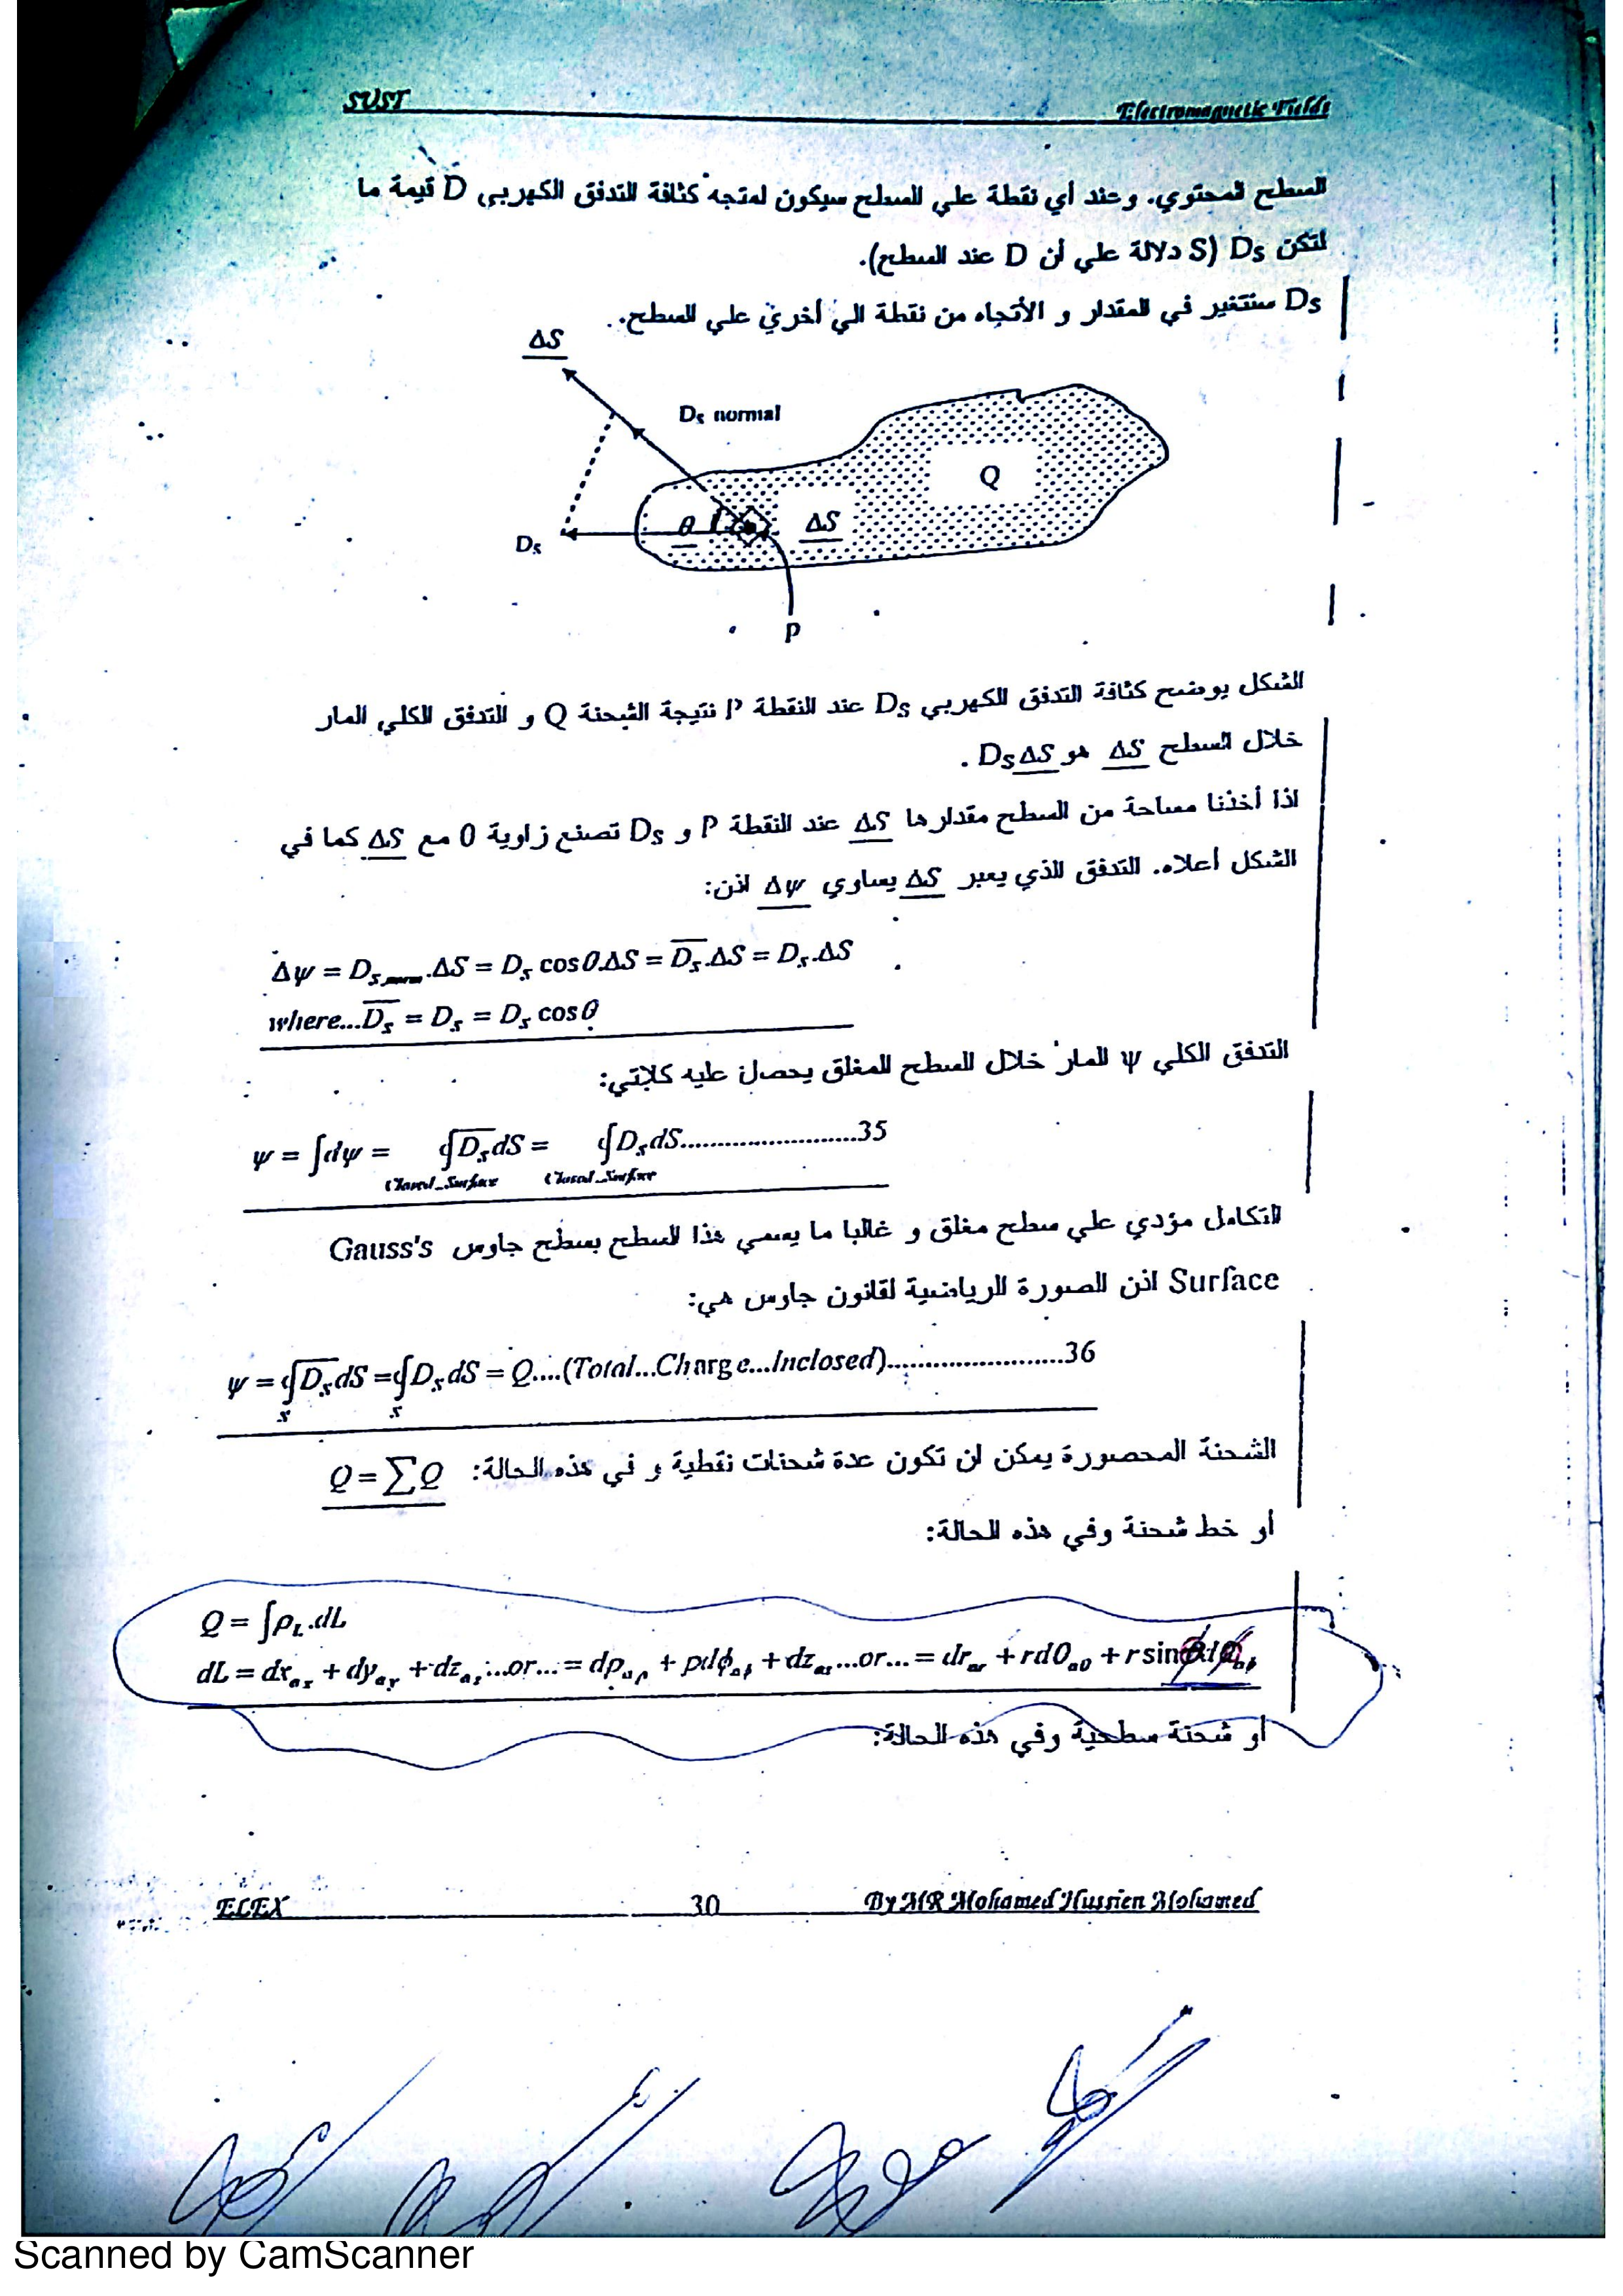 SUST Electromagnetic Fields
السطح المحتوي. وعند أي نقطة علي السطح سيكون لمتجه كثافة التدفق الكهربي D قيمة ما
لتكن Ds (S دلالة علي أن D عند السطح).
Ds ستتغير في المقدار و الأتجاه من نقطة الي أخري علي السطح.
ΔS
Ds normal
Q
θ
ΔS
Ds
P
الشكل يوضح كثافة التدفق الكهربي Ds عند النقطة P نتيجة الشحنة Q و التدفق الكلي المار
خلال السطح ΔS هو DsΔS .
اذا أخذنا مساحة من السطح مقدارها ΔS عند النقطة P و Ds تصنع زاوية θ مع ΔS كما في
الشكل أعلاه. التدفق الذي يعبر ΔS يساوي Δψ اذن:
Δψ = Ds,norm.ΔS = Ds cosθ.ΔS = D̅s.ΔS = Ds.ΔS
where...D̅s = Ds = Ds cosθ
التدفق الكلي ψ المار خلال السطح المغلق يحصل عليه كلاتي:
ψ = ∫dψ = ∮D̅s dS = ∮Ds dS........................35
Closed_Surface Closed_Surface
التكامل مؤدي علي سطح مغلق و غالبا ما يسمي هذا السطح بسطح جاوس Gauss's
Surface اذن الصورة الرياضية لقانون جاوس هي:
ψ = ∮D̅s dS = ∮Ds dS = Q....(Total...Charge...Inclosed)........................36
S S
الشحنة المحصورة يمكن ان تكون عدة شحنات نقطية و في هذه الحالة: Q = ∑Q
أو خط شحنة وفي هذه الحالة:
Q = ∫ρL.dL
dL = dx ax + dy ay + dz az ...or... = dρ aρ + ρdφ aφ + dz az ...or... = dr ar + rdθ aθ + r sinθdφ aφ
أو شحنة سطحية وفي هذه الحالة:
ELEX 30 By MR Mohamed Hussien Mohamed
Scanned by CamScanner